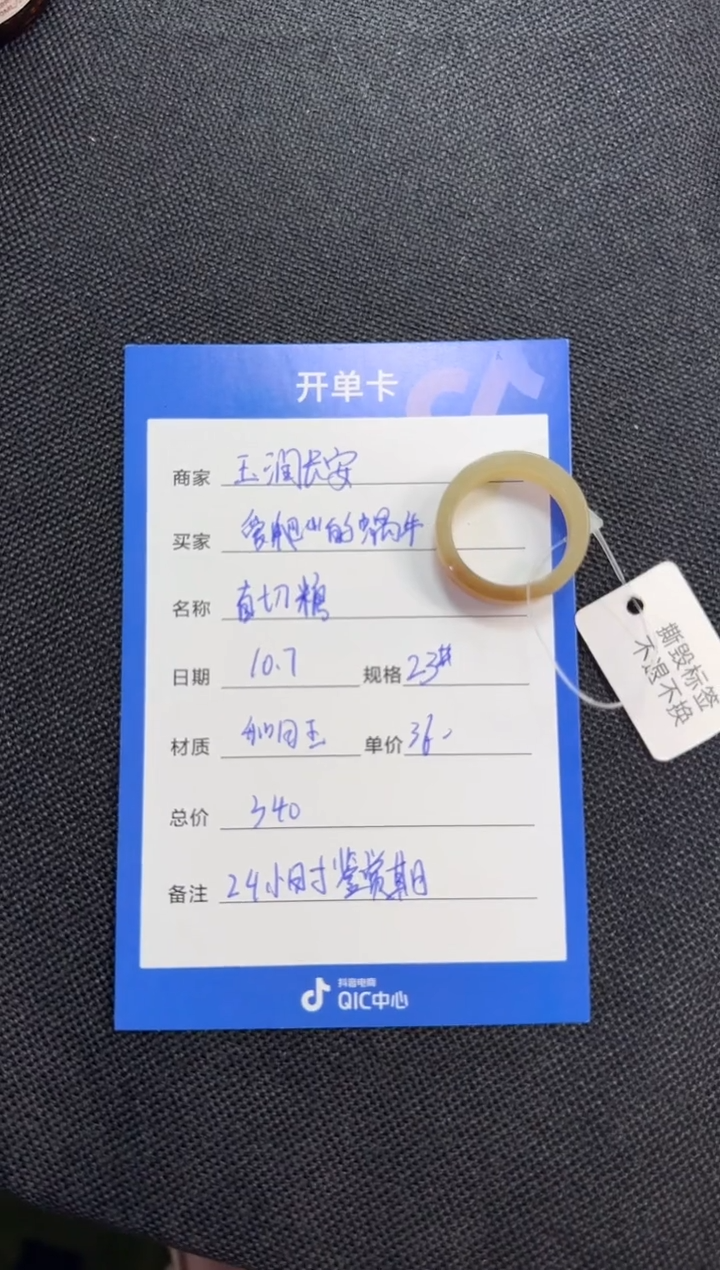 开单卡
商家 玉润长安
买家 爱爬山的蜗牛
名称 直切糯
日期 10.7 规格 23#
材质 和田玉 单价 36
总价 340
备注 24小时鉴赏期
撕毁标签
不退不换
抖音电商
QIC中心